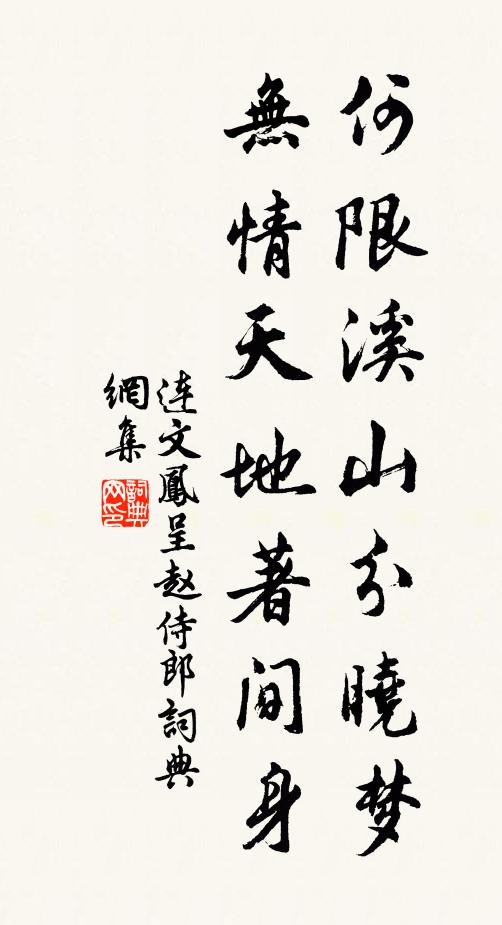 何限溪山分曉梦
無情天地著間身
連文鳳呈赵侍郎詞典
網集
詞典
网印